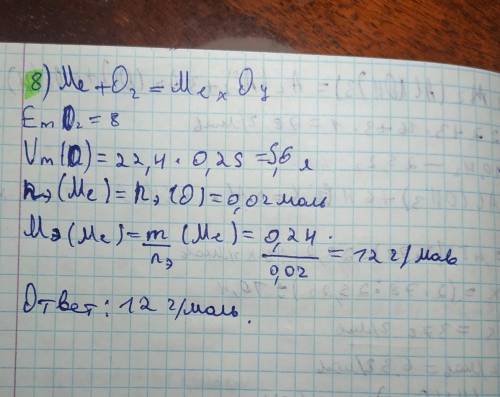 8) Me + O2 = MexOy
Em O2 = 8
Vm(O) = 22,4 · 0,25 = 5,6 л
nэ(Me) = nэ(O) = 0,02 моль
Mэ(Me) = m/nэ (Me) = 0,24/0,02 = 12 г/моль
Ответ: 12 г/моль.